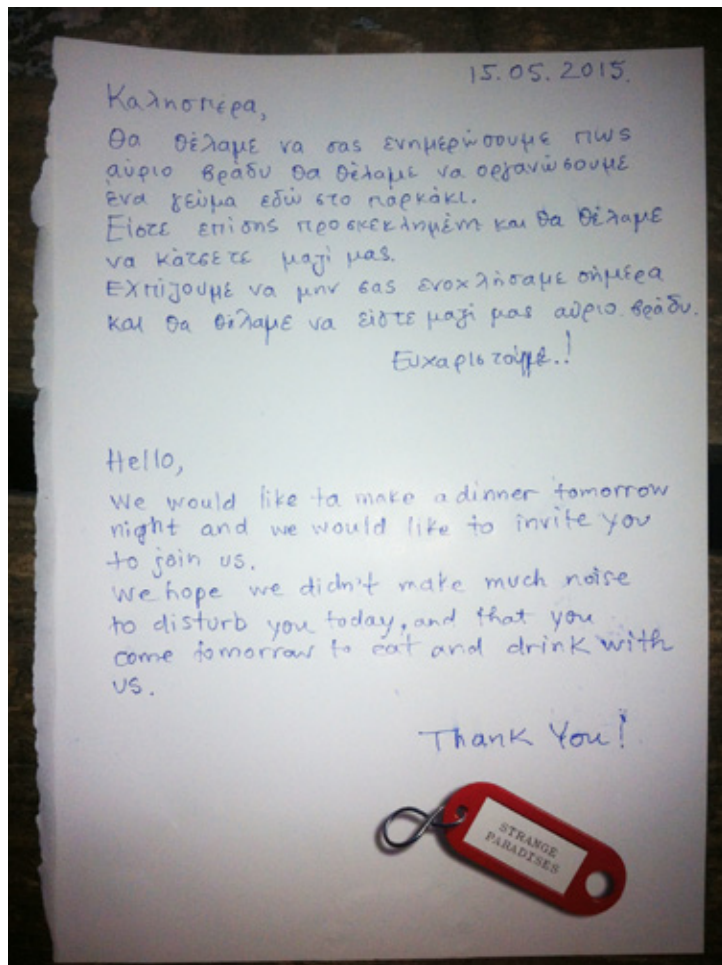 15.05.2015.
Καλησπέρα,
Θα θέλαμε να σας ενημερώσουμε πως
αύριο βράδυ θα θέλαμε να οργανώσουμε
ένα γεύμα εδώ στο παρκάκι.
Είστε επίσης προσκεκλημένη και θα θέλαμε
να κάτσετε μαζί μας.
Ελπίζουμε να μην σας ενοχλήσαμε σήμερα
και θα θέλαμε να είστε μαζί μας αύριο βράδυ.
Ευχαριστούμε.!
Hello,
We would like to make a dinner tomorrow
night and we would like to invite you
to join us.
We hope we didn't make much noise
to disturb you today, and that you
come tomorrow to eat and drink with
us.
Thank You!
STRANGE
PARADISES